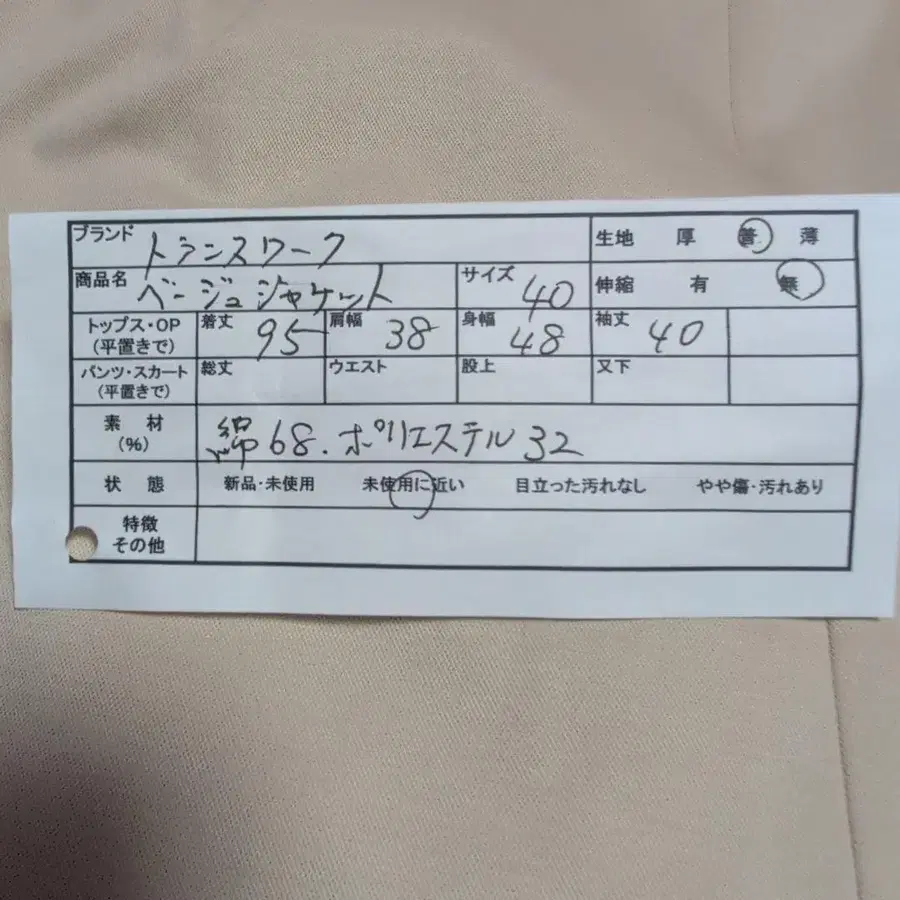 ブランド トランスワーク 生地 厚 普 薄
商品名 ベージュジャケット サイズ 40 伸縮 有 無
トップス・OP (平置きで) 着丈 95 肩幅 38 身幅 48 袖丈 40
パンツ・スカート (平置きで) 総丈 ウエスト 股上 又下
素材 (%) 綿68.ポリエステル32
状態 新品・未使用 未使用に近い 目立った汚れなし やや傷・汚れあり
特徴 その他